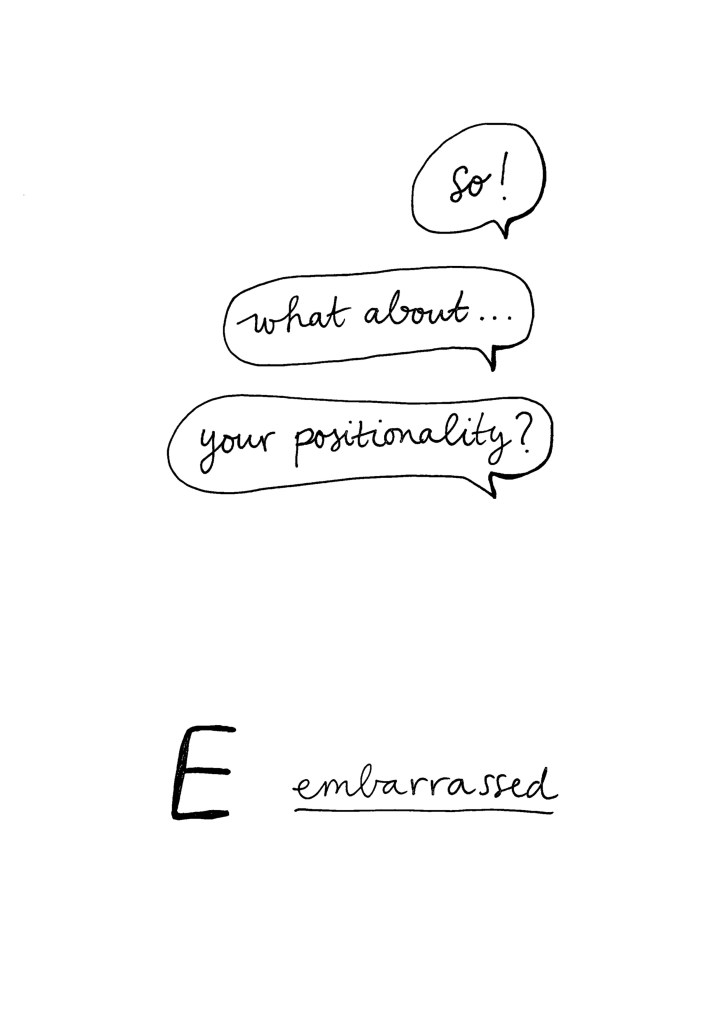 so!
what about...
your positionality?
E embarrassed